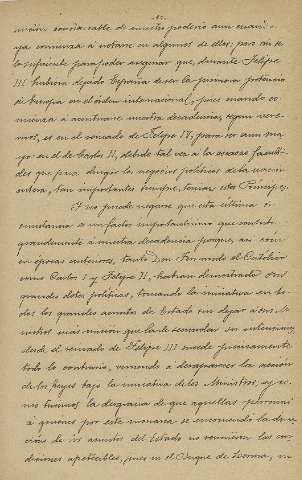 nución considerable de nuestro poderío aun cuando
ya comienza á notarse en algunos de ellos; pero no es
lo suficiente para poder asegurar que, durante Felipe
III hubiera dejado España de ser la primera potencia
de Europa en el órden internacional, pues cuando co-
mienza á acentuarse nuestra decadencia, segun vere-
mos, es en el reinado de Felipe IV, para ser aun ma-
yor en el de Carlos II, debido tal vez á la escasez faculta-
des que, para dirigir los negocios políticos de la nación
entera, tan importantes siempre, tenían estos Príncipes.
Y no puede negarse que esta última cir-
cunstancia es un factor importantísimo que contribuyó
grandemente á nuestra decadencia porque, así como
en épocas anteriores, tanto Don Fernando el Católico
como Carlos I y Felipe II, habían demostrado sus
grandes dotes políticas, tomando la iniciativa en to-
dos los grandes asuntos de Estado sin dejar á sus Mi-
nistros más misión que la de secundar su
desde el reinado de Felipe III sucede precisamente
todo lo contrario, viniendo á desaparecer la acción
de los Reyes bajo la iniciativa de los Ministros, y co-
mo tuvimos la desgracia de que aquellas personas
á quienes por este monarca se encomendó la direc-
ción de los asuntos del Estado no reunieran las con-
diciones apetecibles, pues ni el Duque de Lerma, ni